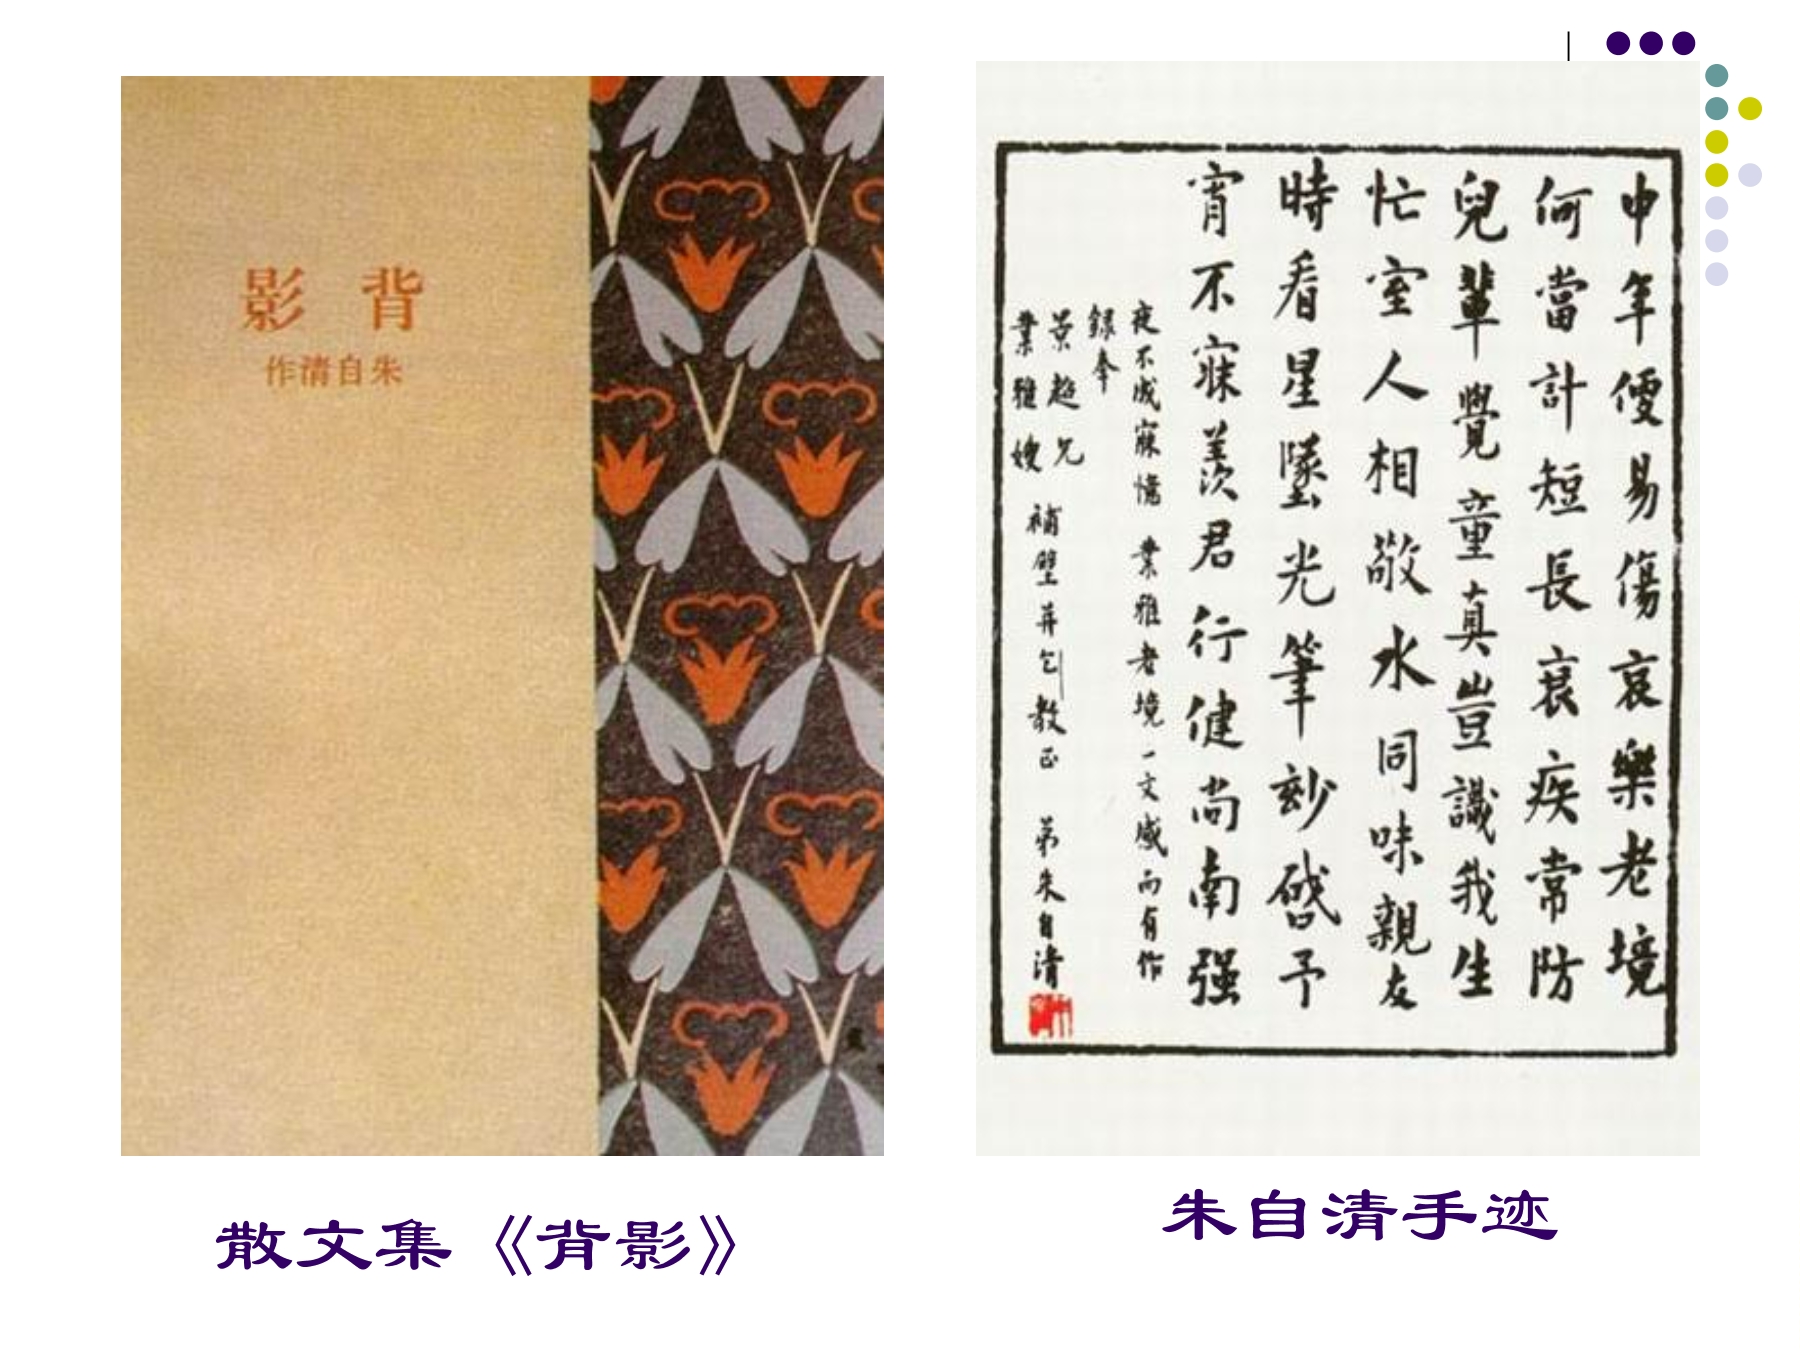 影 背
作清自朱
中年便易傷哀樂老境
何當計短長衰疾常防
兒輩覺童真豈識我生
忙室人相敬水同味親友
時看星墜光筆妙啟予
宵不寐羡君行健尚南强
夜不成寐憶業雅老境一文感而有作
録奉
景超兄
業雅嫂
補壁并乞教正 弟朱自清
散文集《背影》
朱自清手迹